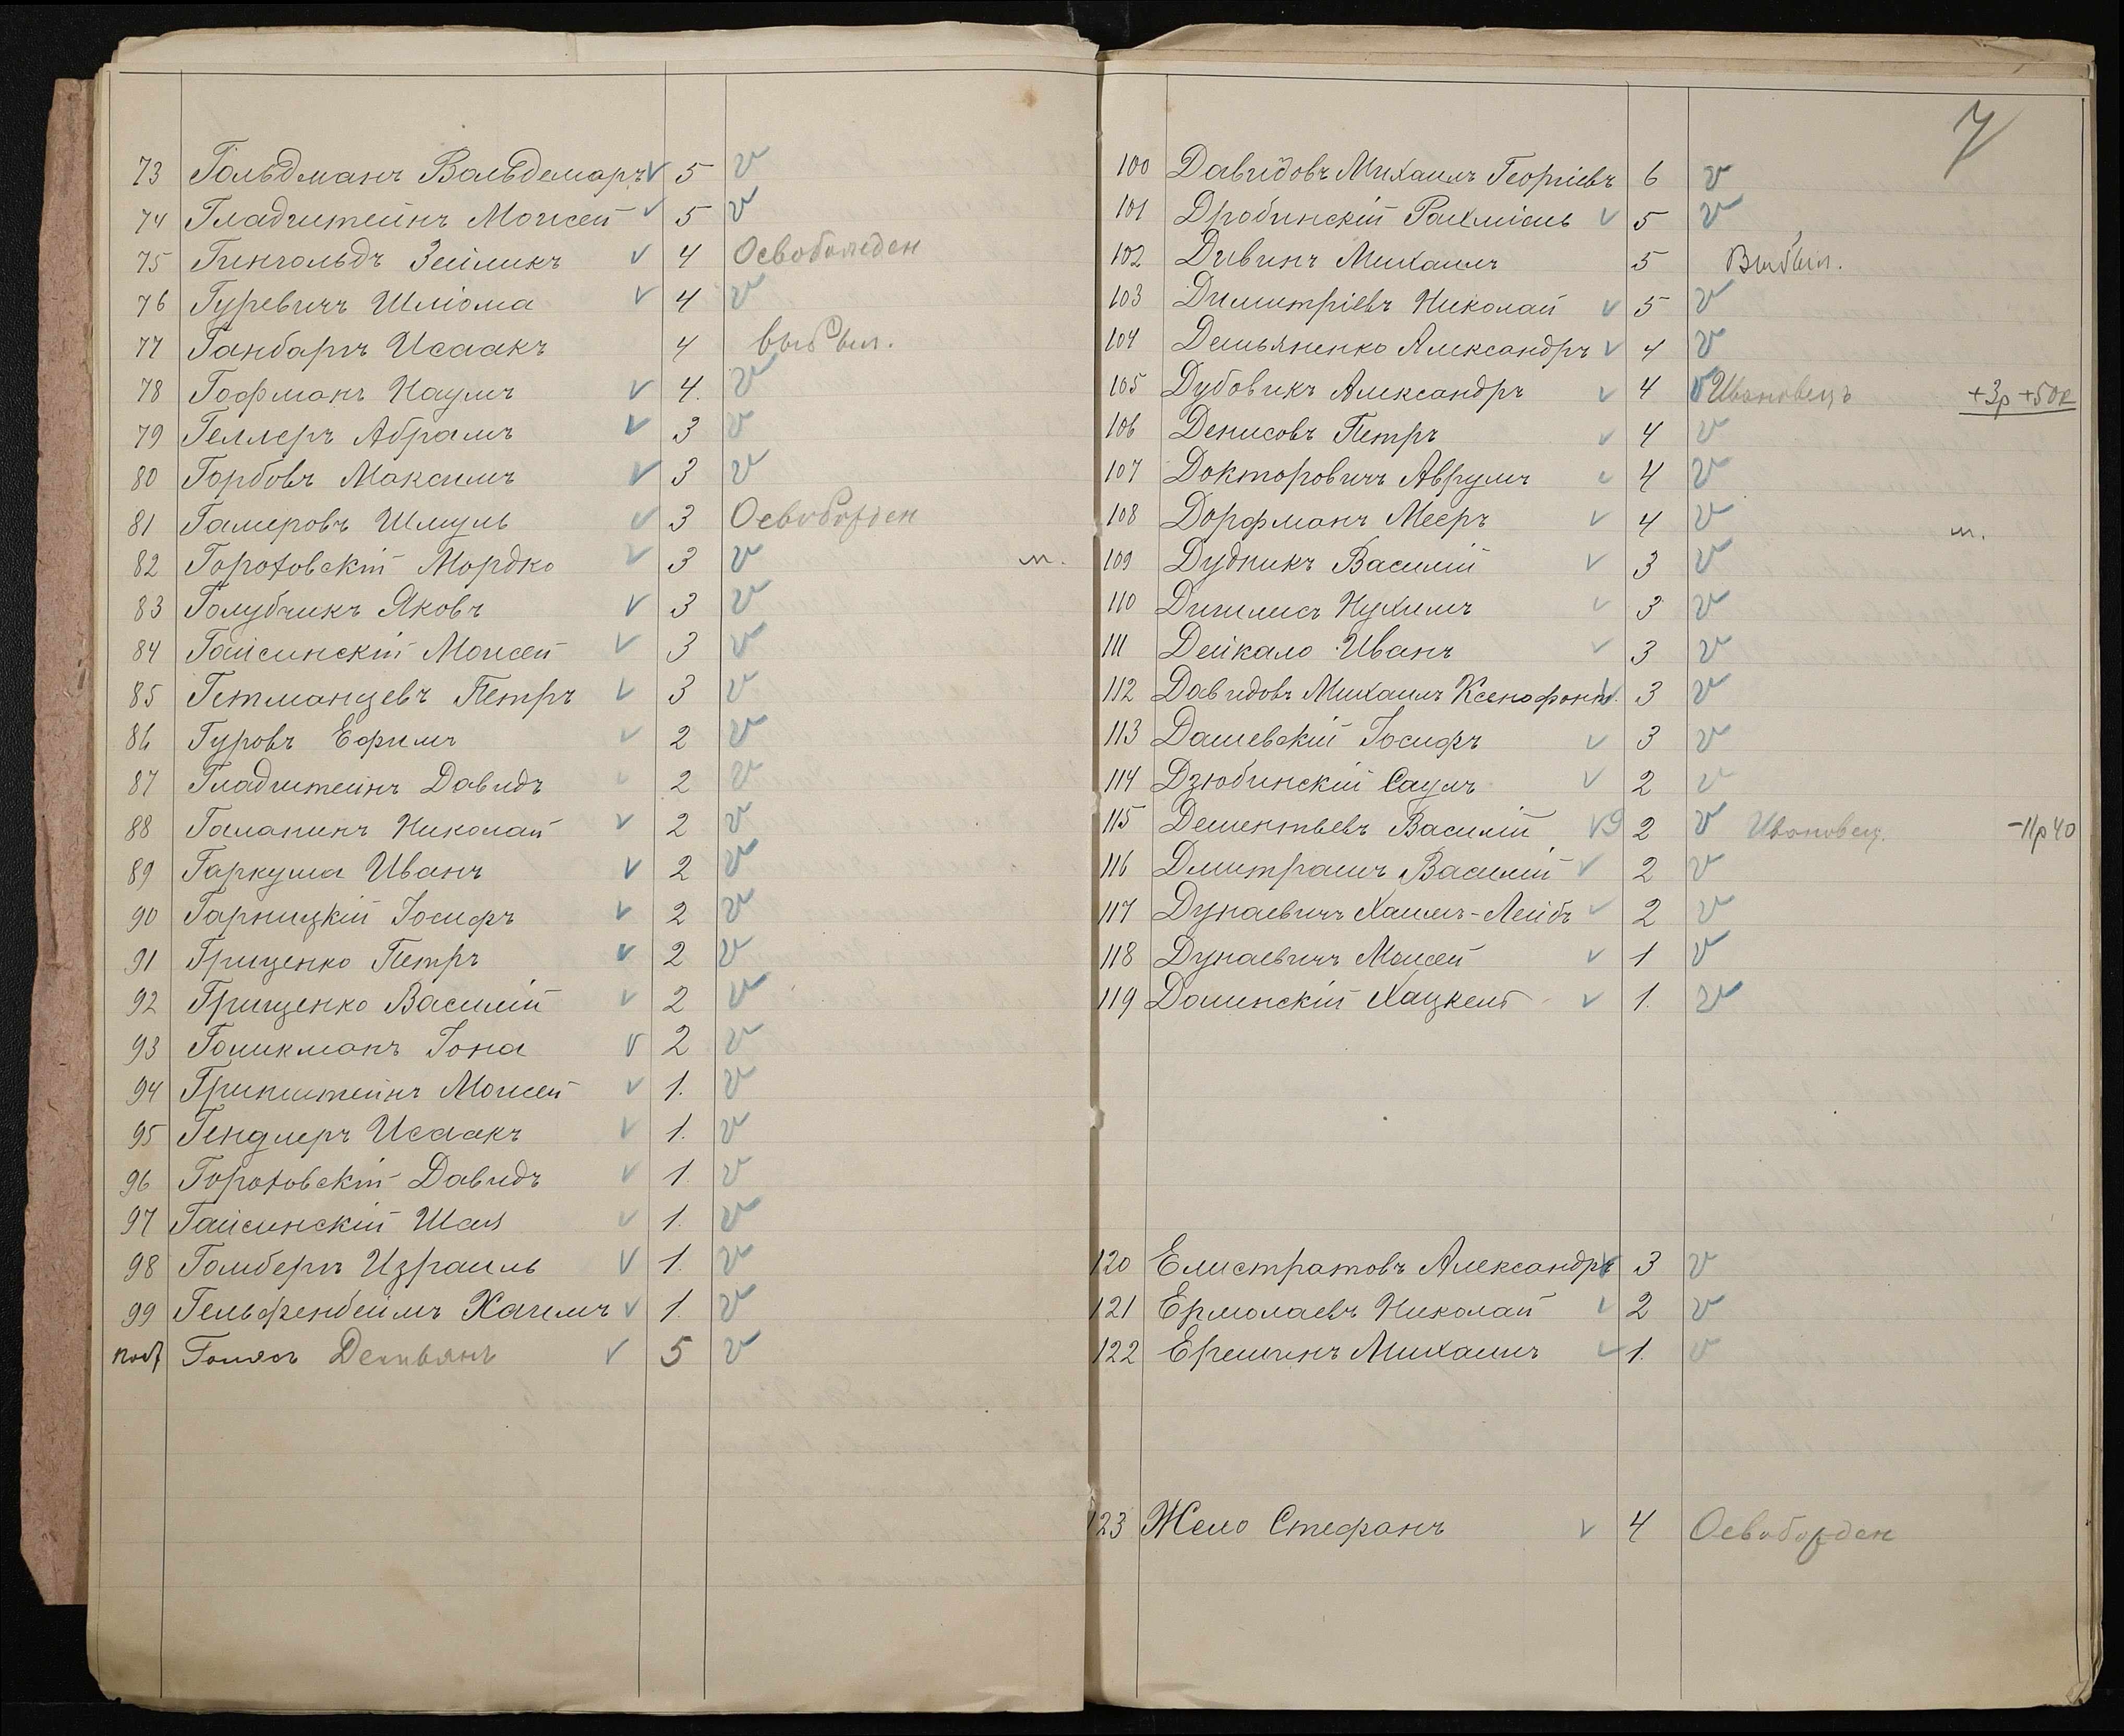 73 Гольдманъ Вальдемаръ v 5 v
74 Гладштейнъ Моисей v 5 v
75 Гингольдъ Зейликъ v 4 Освобожден
76 Гуревичъ Шліома v 4 v
77 Ганбаргъ Исаакъ 4 выбыл.
78 Гофманъ Наумъ v 4. v
79 Геллеръ Абрамъ v 3 v
80 Горбовъ Максимъ v 3 v
81 Гамеровъ Шмуль v 3 Освобожден
82 Гороховскій Мордко v 3 v
83 Голубчикъ Яковъ v 3 v
84 Гайсинскій Моисей v 3 v
85 Гетманцевъ Петръ v 3 v
86 Гуровъ Ефимъ v 2 v
87 Гладштейнъ Давидъ v 2 v
88 Галанинъ Николай v 2 v
89 Гаркуша Иванъ v 2 v
90 Гарницкій Іосифъ v 2 v
91 Гриценко Петръ v 2 v
92 Грищенко Василій v 2 v
93 Гоникманъ Іона v 2 v
94 Гринштейнъ Моисей v 1. v
95 Гендлеръ Исаакъ v 1. v
96 Гороховскій Давидъ v 1. v
97 Гайсинскій Шая v 1. v
98 Гомбергъ Израиль v 1. v
99 Гельфенбеймъ Хаимъ v 1. v
Демьянъ v 5 v
7
100 Давидовъ Михаилъ Георгіевъ 6 v
101 Дробинскій Рахміель v 5 v
102 Дивинъ Михаилъ 5 Выбыл.
103 Димитріевъ Николай v 5 v
104 Демьяненко Александръ v 4 v
105 Дубовикъ Александръ v 4 v Ивановецъ +3р +50к
106 Денисовъ Петръ v 4 v
107 Докторовичъ Аврумъ v 4 v
108 Дорфманъ Мееръ v 4 v
109 Дудникъ Василій v 3 v
110 Нухимъ v 3 v
111 Дейкало Иванъ v 3 v
112 Давидовъ Михаилъ Ксенофонт. v 3 v
113 Дашевскій Іосифъ v 3 v
114 Дзюбинскій Саулъ v 2 v
115 Дементьевъ Василій v 2 v Ивановец. -11р40
116 Дмитрашъ Василій v 2 v
117 Дунаевичъ Хаимъ-Лейбъ v 2 v
118 Дунаевичъ Моисей v 1 v
119 Долинскій Хацкель v 1. v
120 Елистратовъ Александръ v 3 v
121 Ермолаевъ Николай v 2 v
122 Ереминъ Михаилъ v 1. v
123 Жело Стефанъ v 4 Освобожден